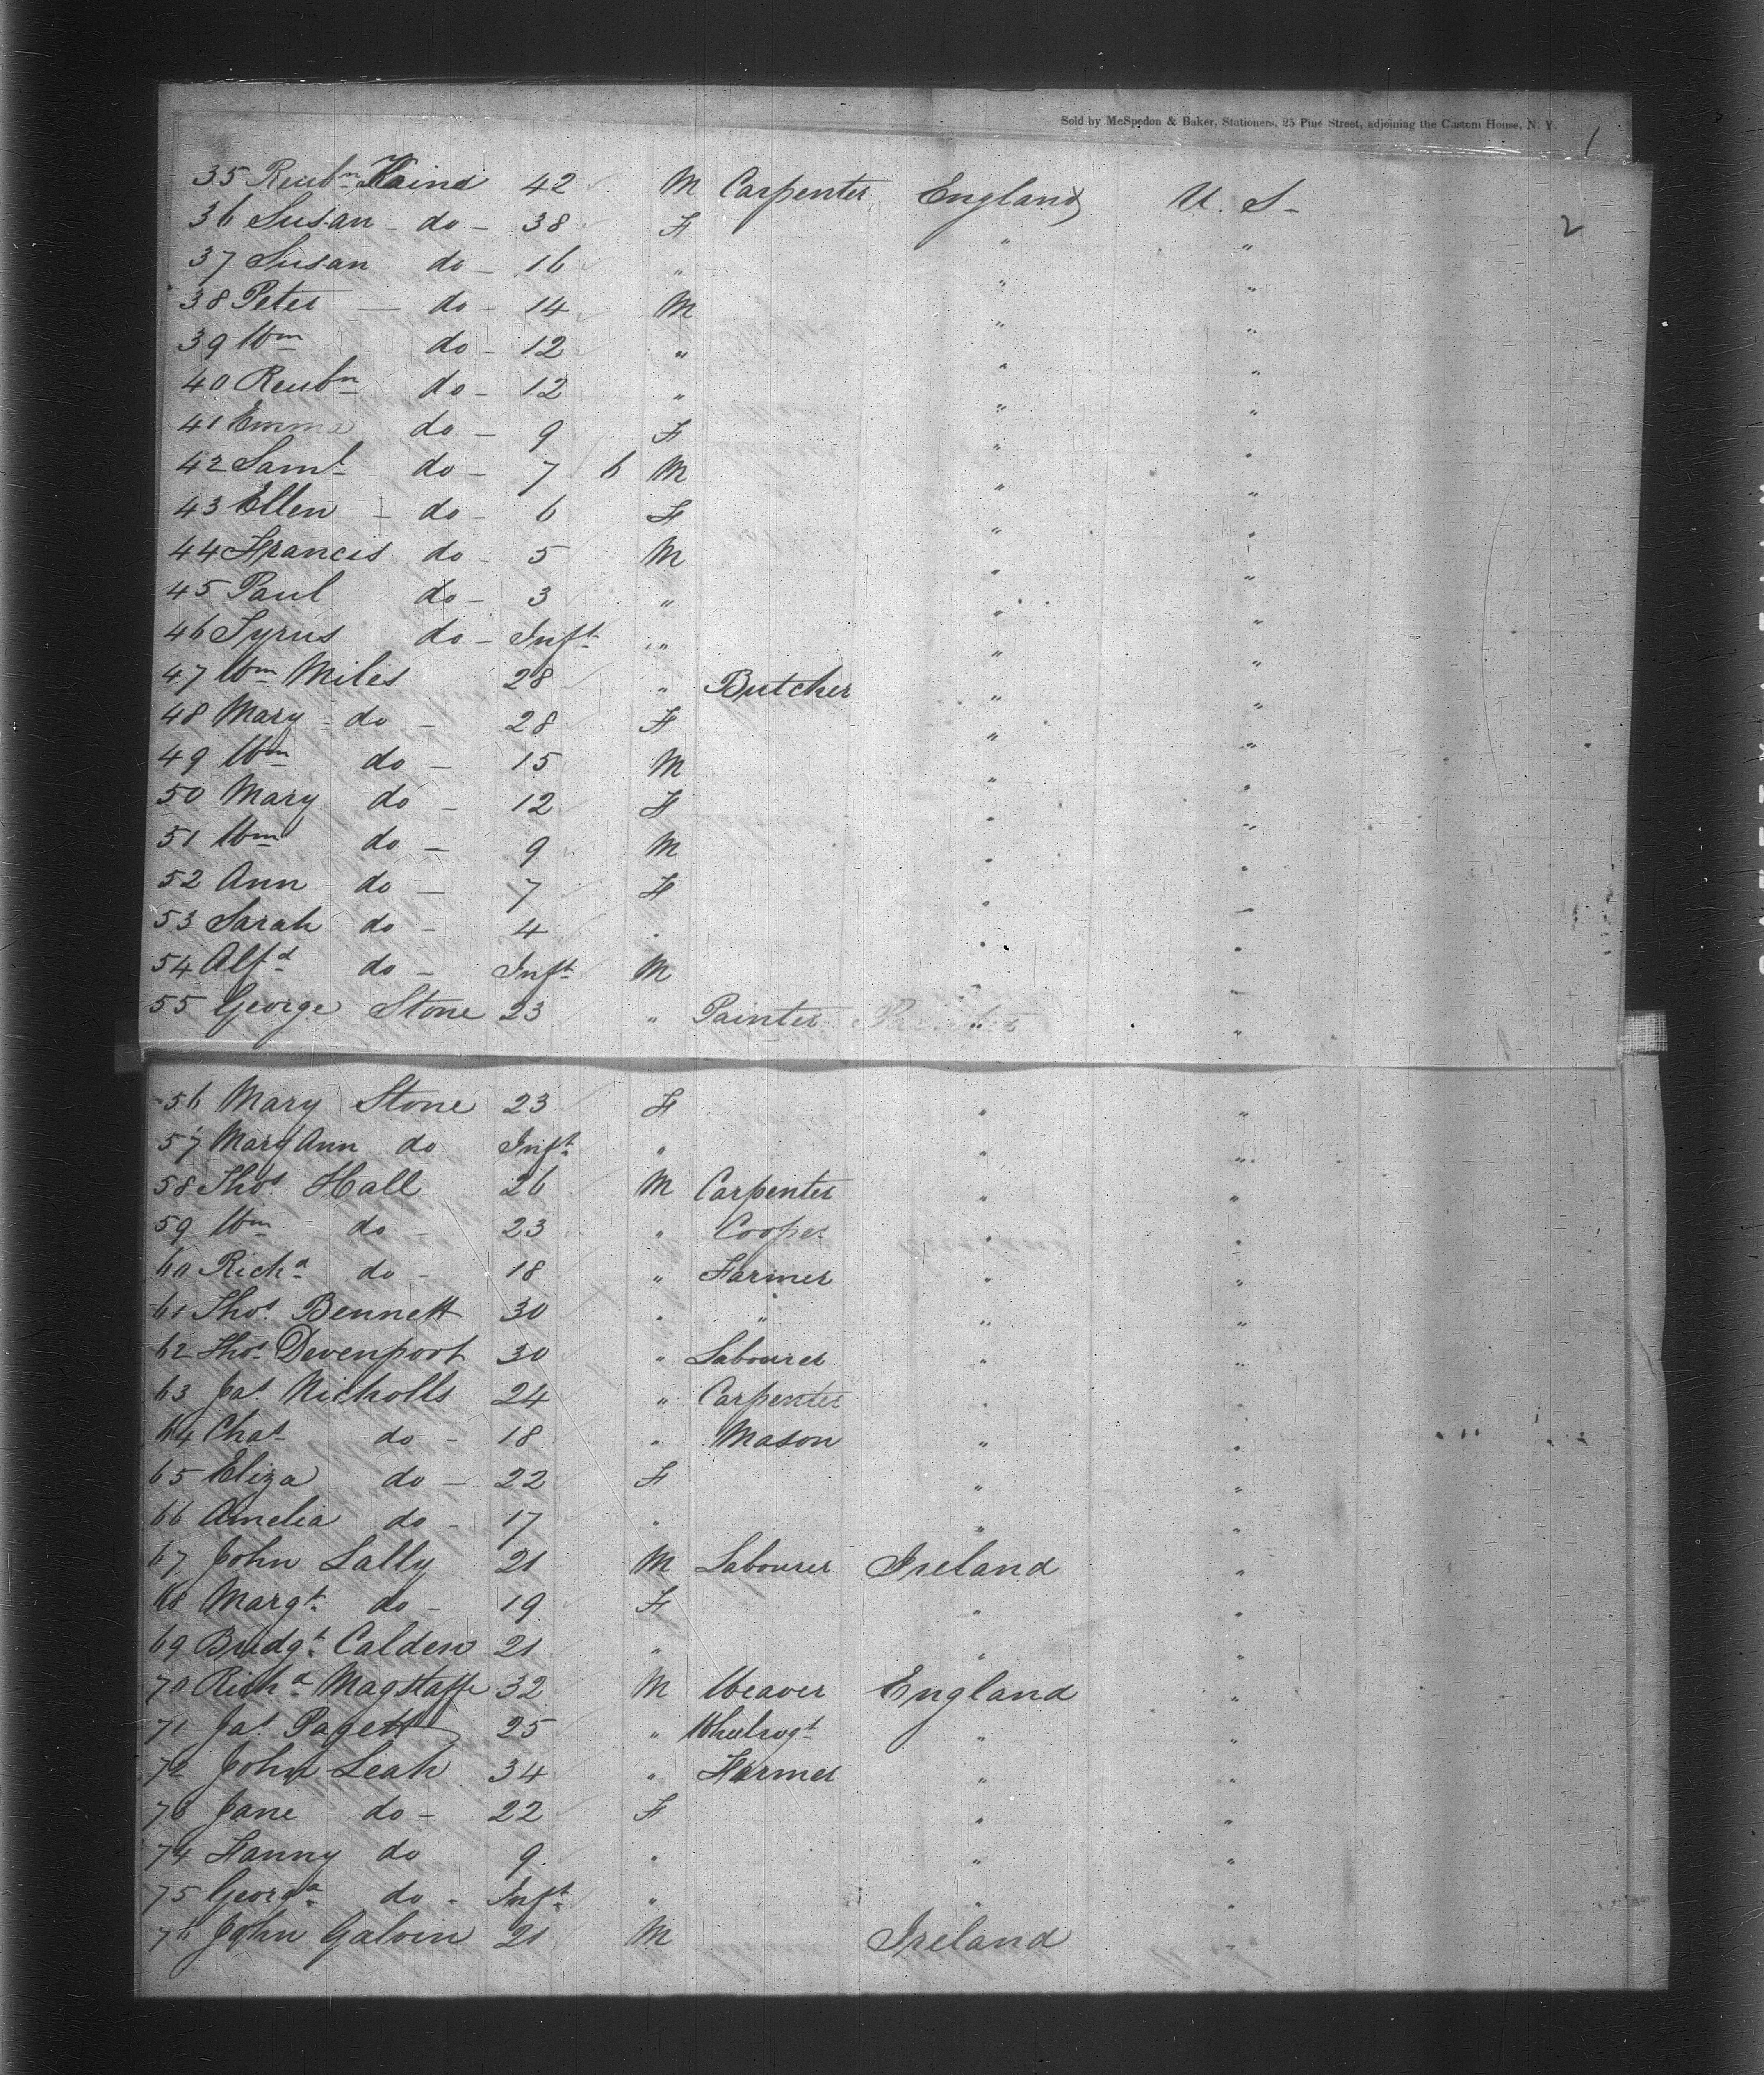 Sold by McSpedon & Baker, Stationers, 25 Pine Street, adjoining the Custom House, N. Y.
1
2
35 Reubn Kaine 42 M Carpenter England U. S.
36 Susan do 38 F " "
37 Susan do 16 " " "
38 Peter do 14 M " "
39 Wm do 12 " " "
40 Reubn do 12 " " "
41 Emma do 9 F " "
42 Saml do 7 6 M " "
43 Ellen do 6 F " "
44 Francis do 5 M " "
45 Paul do 3 " " "
46 Syrus do Inft " " "
47 Wm Miles 28 " Butcher " "
48 Mary do 28 F " "
49 Wm do 15 M " "
50 Mary do 12 F " "
51 Wm do 9 M " "
52 Ann do 7 F " "
53 Sarah do 4 " " "
54 Alfd do Inft M " "
55 George Stone 23 " Painter " "
56 Mary Stone 23 F " "
57 Mary Ann do Inft " " "
58 Thos. Hall 26 M Carpenter " "
59 Wm do 23 " Cooper " "
60 Richd do 18 " Farmer " "
61 Thos. Bennett 30 " " " "
62 Thos. Devenport 30 " Labourer " "
63 Jas. Nicholls 24 " Carpenter " "
64 Chas do 18 " Mason " "
65 Eliza do 22 F " "
66 Amelia do 17 " " "
67 John Lally 21 M Labourer Ireland "
68 Margt. do 19 F " "
69 Bridgt. Calden 21 " " "
70 Richd Magstaffe 32 M Weaver England "
71 Jas. Pagett 25 " Whelrogt " "
72 John Leah 34 " Farmer " "
73 Jane do 22 F " "
74 Fanny do 9 " " "
75 Georga do Inft " " "
76 John Galvin 21 M Ireland "